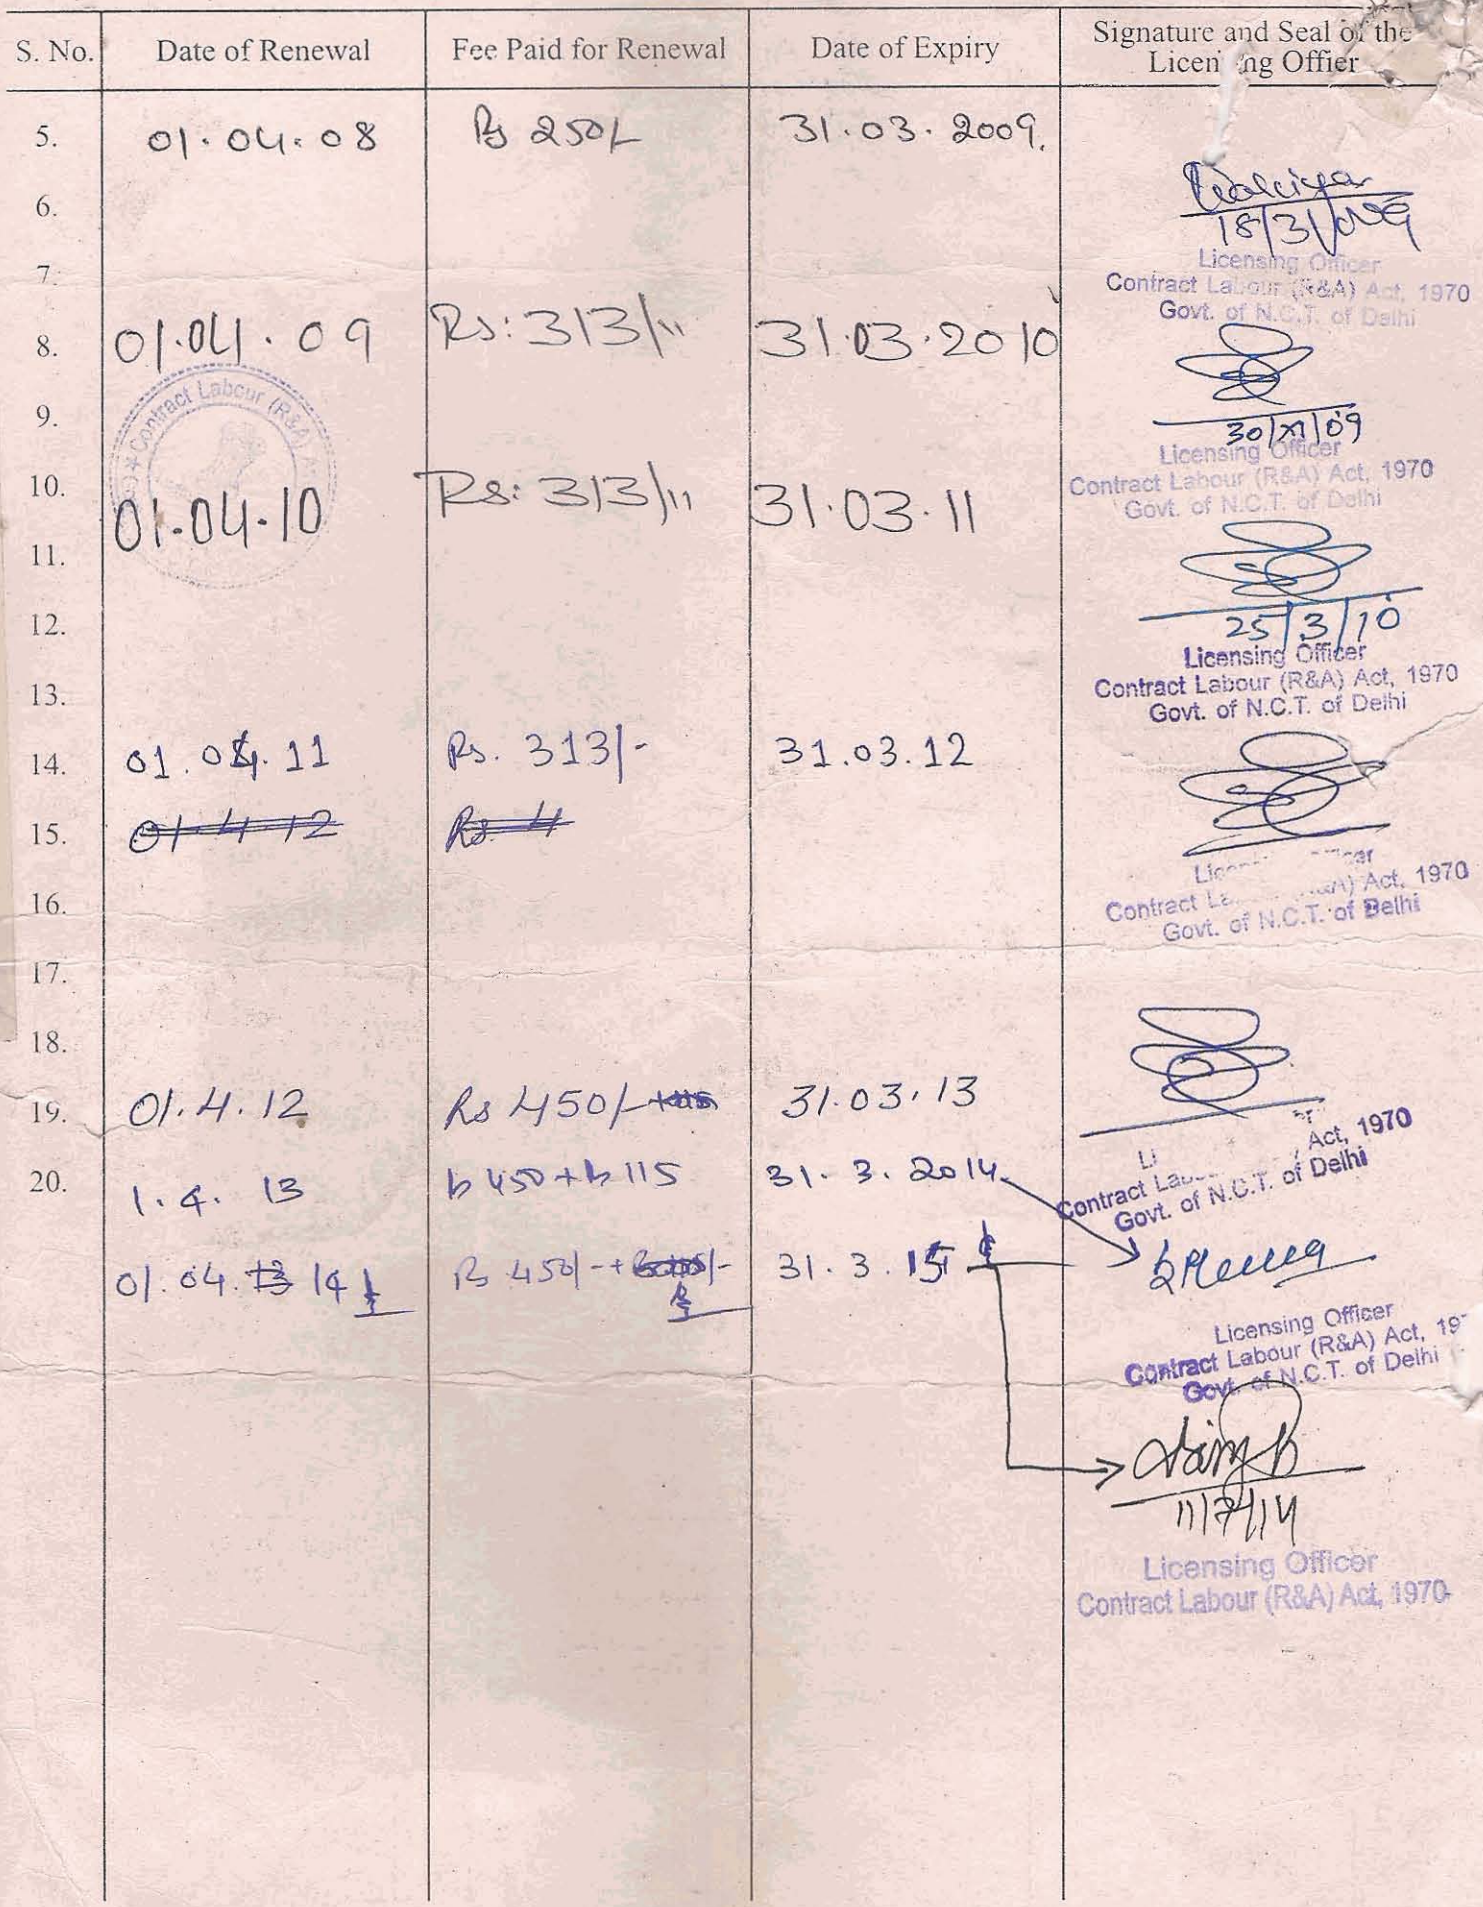 S. No.
Date of Renewal
Fee Paid for Renewal
Date of Expiry
Signature and Seal of the
Licensing Offier
5.
01.04.08
Rs 250/-
31.03.2009.
6.
18/3/
Licensing Officer
7.
Contract Labour (R&A) Act, 1970
Govt. of N.C.T. of Delhi
8.
01.04.09
Rs: 313/"
31.03.2010
9.
Contract Labour (R&A)
30/XI/09
Licensing Officer
Contract Labour (R&A) Act, 1970
Govt. of N.C.T. of Delhi
10.
01.04.10
Rs: 313/"
31.03.11
11.
12.
25/3/10
Licensing Officer
Contract Labour (R&A) Act, 1970
Govt. of N.C.T. of Delhi
13.
14.
01.04.11
Rs. 313/-
31.03.12
15.
01 4 12
Rs 4
Contract La (R&A) Act, 1970
Govt. of N.C.T. of Delhi
16.
17.
18.
19.
01.4.12
Rs 450/-
31.03.13
Act, 1970
Contract
Govt. of N.C.T. of Delhi
20.
1.4. 13
Rs 450 + Rs 115
31. 3. 2014
01.04. 13 14
Rs 450/- +
31. 3. 15
Licensing Officer
Contract Labour (R&A) Act, 197
Govt. of N.C.T. of Delhi
11/7/14
Licensing Officer
Contract Labour (R&A) Act, 1970